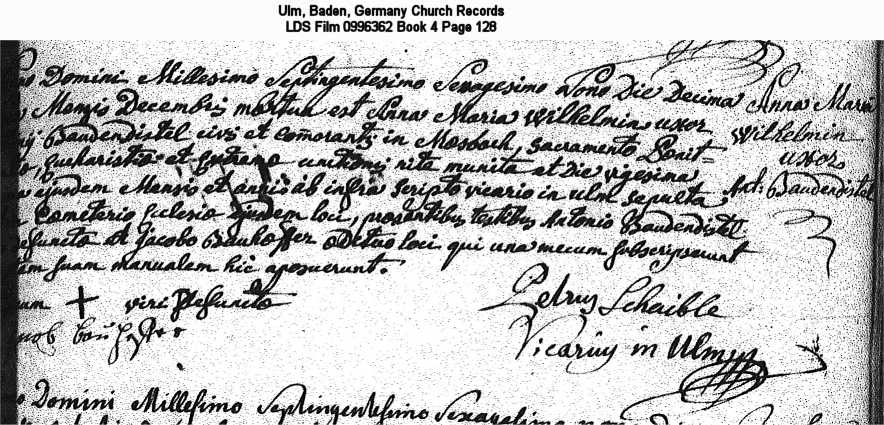 Ulm, Baden, Germany Church Records
LDS Film 0996362 Book 4 Page 128
Domini Millesimo Septingentesimo Sexagesimo Nono Die Decima
Mensis Decembris mortua est Anna Maria Wilhelmin uxor
Baudendistel civis et comorantis in Mosbach, Sacramento Pœnit=
Eucharistiæ et Extremæ unctionis rite munita et Die vigesima
ejusdem Mensis et anni ab infra scripto vicario in ulm sepulta
Cœmeterio Ecclesiæ ejusdem loci, præsentibus testibus Antonio Baudendistel
et Jacobo loci qui una mecum subscripserunt
suam manualem hic aposuerunt.
Anna Maria
Wilhelmin
uxor
Ant: Baudendistel
+ viri
Petrus Scheible
Vicarius in Ulm
Domini Millesimo Septingentesimo